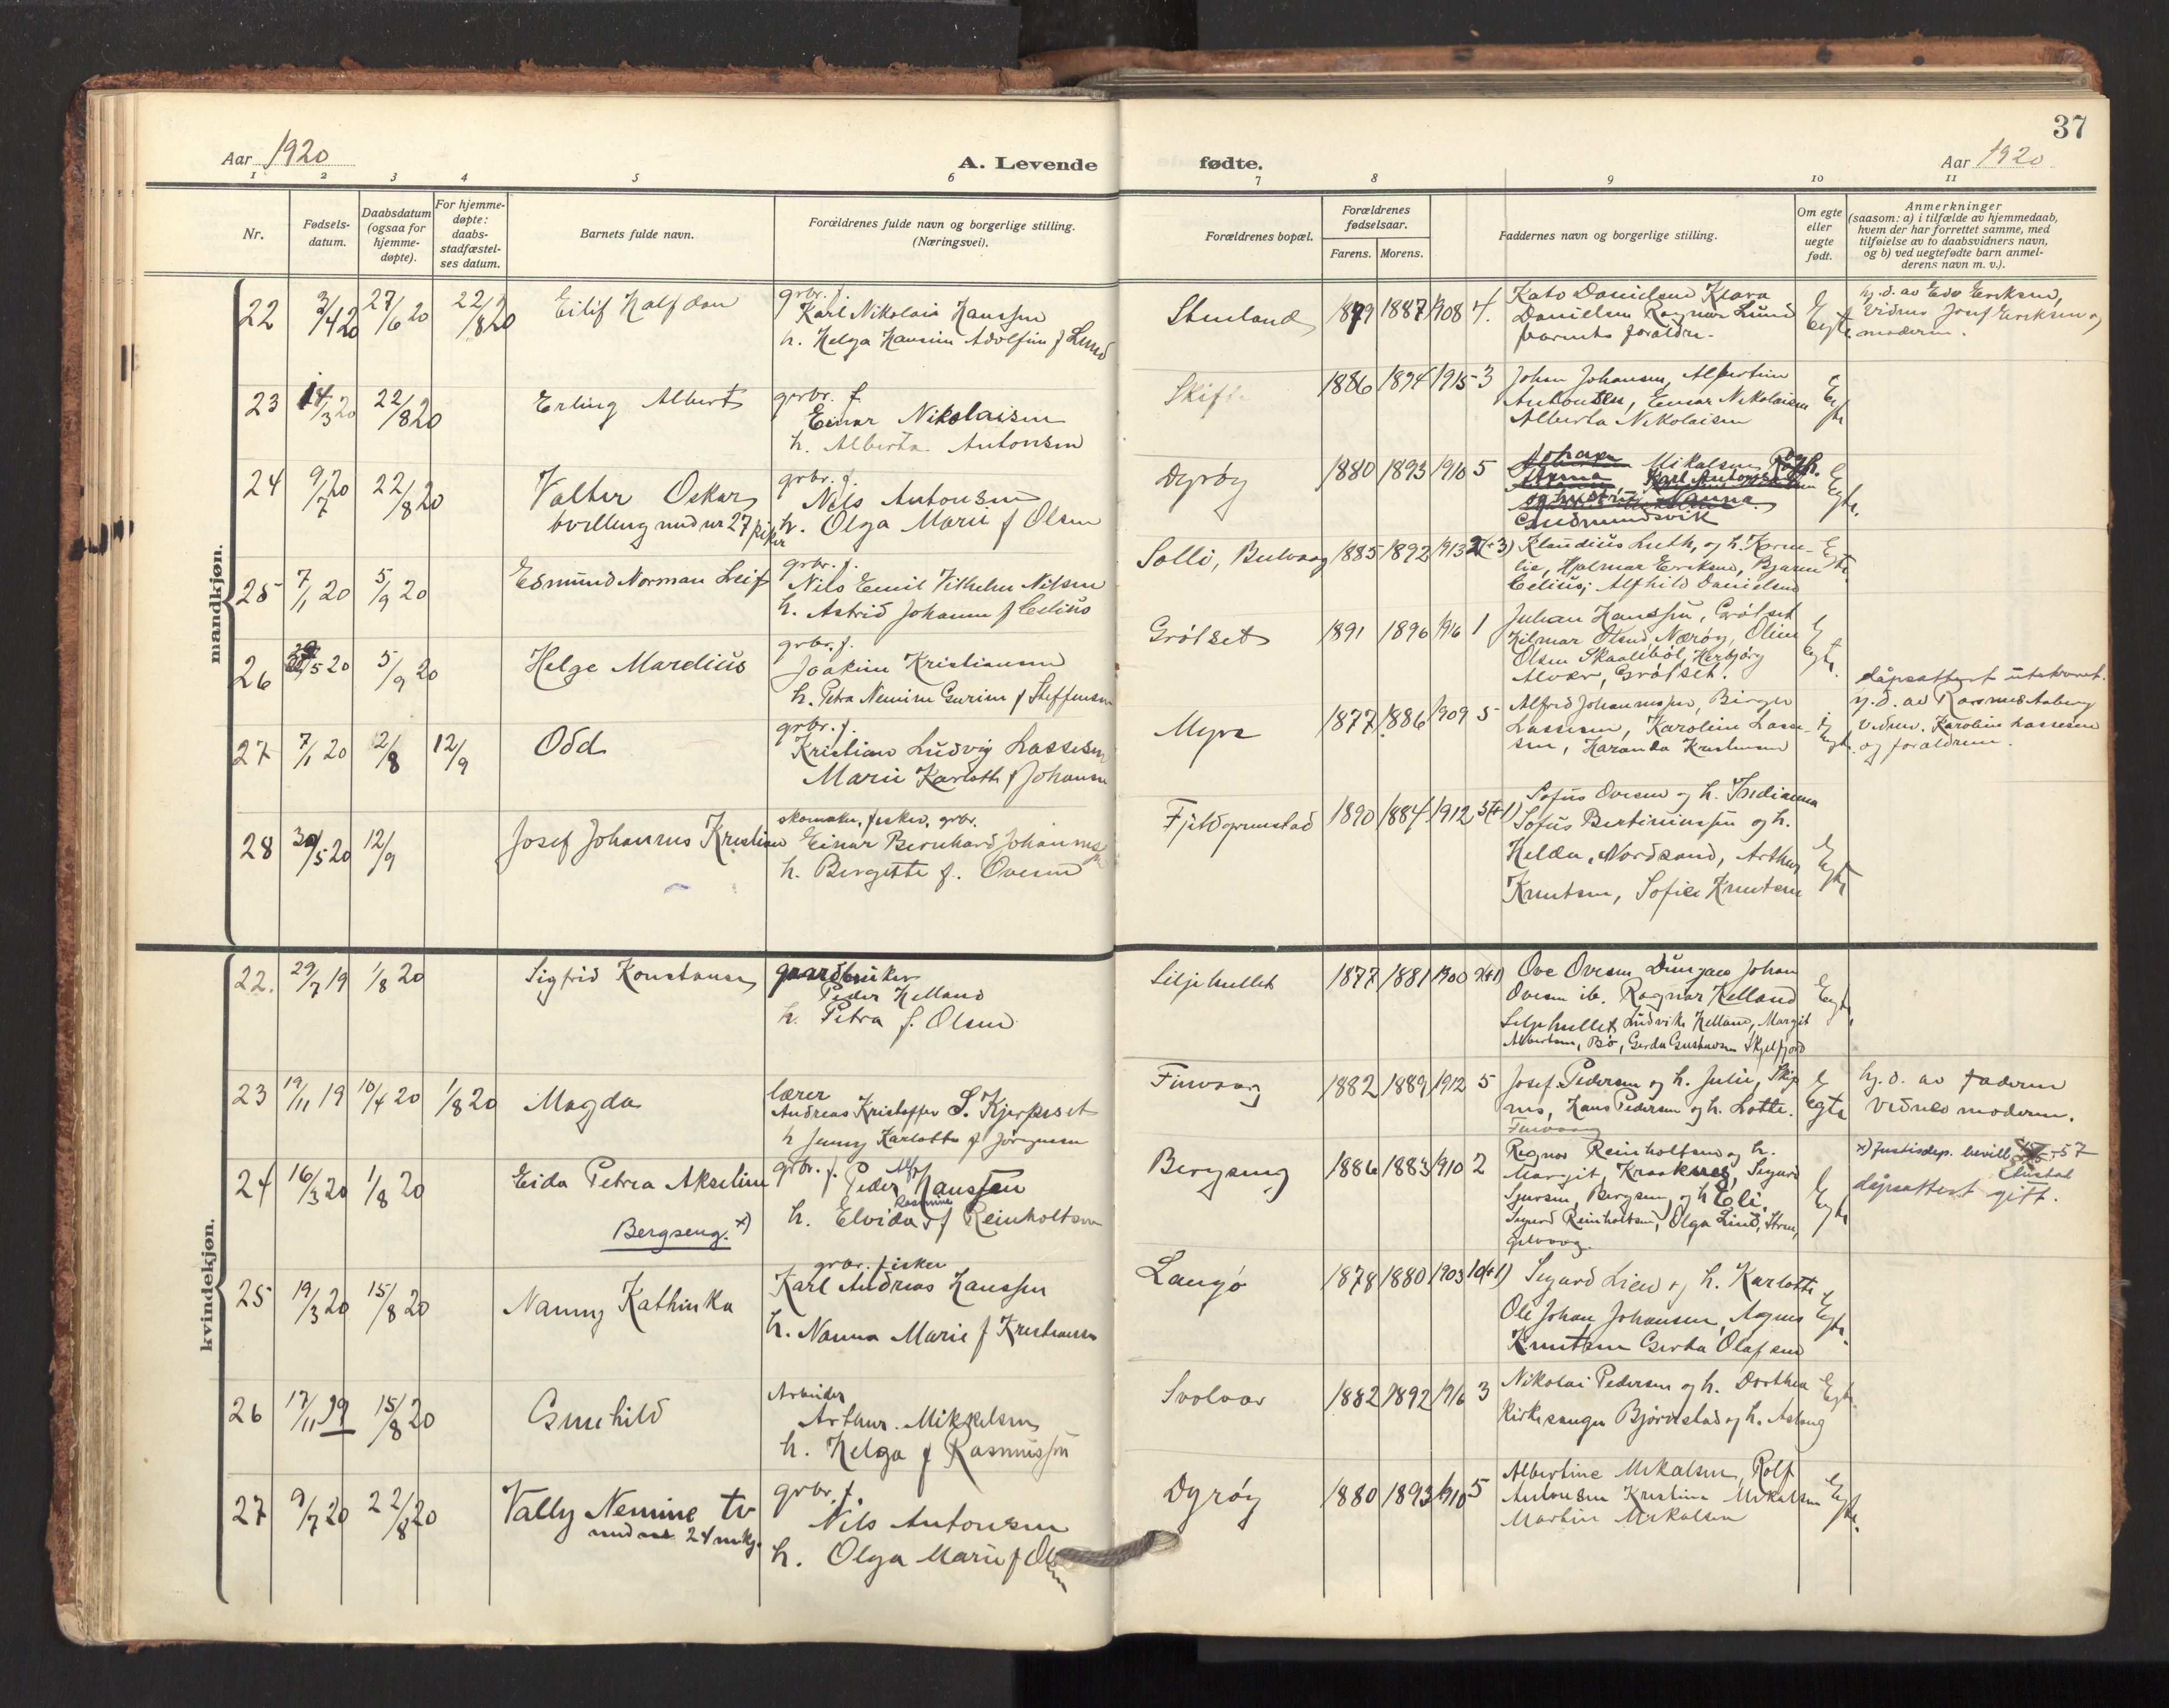 37
Aar 1920
A. Levende
fødte.
Aar 1920
1 2 3 4 5 6 7 8 9 10 11
Nr.
Fødsels-
datum.
Daabsdatum
(ogsaa for
hjemme-
døpte).
For hjemme-
døpte:
daabs-
stadfæstel-
ses datum.
Barnets fulde navn.
Forældrenes fulde navn og borgerlige stilling.
(Næringsvei).
Forældrenes bopæl.
Forældrenes
fødselsaar.
Farens. Morens.
Faddernes navn og borgerlige stilling.
Om egte
eller
uegte
født.
Anmerkninger
(saasom: a) i tilfælde av hjemmedaab,
hvem der har forrettet samme, med
tilføielse av to daabsvidners navn,
og b) ved uegtefødte barn anmel-
derens navn m. v.).
mandkjøn.
22 3/4 20 27/6 20 22/8 20 Eilif Halfdan
grbr. f.
Karl Nikolai Hanssen
h. Helga Hansine Adolfine f Lund
1879 1887 1908 4.
Kato Danielsen Klara
Danielsen Ragnar Lund
barnets forældre.
Egte
hj. d. av Edv Eriksen,
Vidner Josef Eriksen og
moderen.
23 14/3 20 22/8 20 Erling Albert
grbr. f.
Einar Nikolaisen
h. Alberta Antonsen
1886 1894 1915 3
Johan Johansen, Albertine
Antonsen, Einar Nikolaisen
Alberta Nikolaisen
Egte
24 9/7 20 22/8 20 Valter Oskar
tvilling med nr 27 piker
grbr. f.
Nils Antonsen
h. Olga Marie f Olsen
Dyrøy 1880 1893 1910 5
Johan Mikalsen
Karl Antonsen
og hustru Nanna
Gudmundsvik
Egte.
25 7/1 20 5/9 20 Edmund Norman Leif
grbr. f.
Nils Emil Vilhelm Nilsen
h. Astrid Johanne f Celius
Solli, 1885 1892 1913 2(+3)
Klaudius Luth, og h. Korne-
lie, Hjelmar Eriksen, Bjarne
Celius; Alfhild Danielsen
Egte.
26 5/20 5/9 20 Helge Mardius
grbr. f.
Joakim Kristiansen
h. Petra Nemine Gurine f Steffensen
Grøtset 1891 1896 1916 1
Julian Hanssen, Grøtset
Hilmar Olsen Nærøy, Oline
Olsen Skaaleböl, Herbjørg
Alvær, Grøtset.
Egte.
dåpsattest utskrevet.
27 7/1 20 12/8 12/9 Odd
grbr. f.
Kristian Ludvig Lassesen
Marie Karlotte f Johansen
Myra 1877 1886 1909 5
Alfred Johannessen, Birger
Lassesen, Karoline Lasse-
sen, Haranda Kristensen
Egte.
hj. d. av Rasmus Aaberg
Vidner. Karoline Lassesen
og forældrene.
28 30/5 20 12/9 Josef Johannes Kristian
skomaker, fisker, grbr.
Einar Bernhard Johannessen
h. Bergitte f. Ovesen
1890 1884 1912 3(+1)
Sofus Ovesen og h. Indianna
Sofus Bertinussen og h.
Helda, Nordsand, Arthur
Knutsen, Sofie Knutsen
Egte
kvindekjøn.
22. 29/7 19 1/8 20 Sigfrid Konstanse
gaardbruker
Peder Helland
h. Petra f. Olsen
Seljehullet 1877 1881 1900
Ove Ovesen Johan
Ovesen ib. Ragnar Helland
Seljehullet, Ludvike Helland, Margit
Albertsen, Bø, Gerda Gustavsen Skjelfjord
Egte,
23 19/11 19 10/4 20 1/8 20 Magda
lærer
Andreas Kristoffer S. Kjerpeset
h Jenny Karlotte f Jørgensen
Finvaag 1882 1889 1912 5
Josef Pedersen og h. Julie, Skip
nes, Hans Pedersen og h. Lotte.
Finvaag
Egte
hj. d. av faderen
vidnes moderen.
24 16/3 20 1/8 20 Eida Petrea Akseline
Bergseng. x)
grbr. f. Peder Alf Hanssen
h. Elvida f Reinholtsen
Bergseng 1886 1883 1910 2
Regnor Reinholtsen og h.
Margit, Kraaknes, Sigurd
Sjursen, Bergseng og h Eli.
Sigurd Reinholtsen, Olga Lind,
Egte
x) Justisdep. bevill. -57
dåpsattest gift.
25 19/3 20 15/8 20 Nanny Kathinka
grbr. fisker
Karl Andreas Hanssen
h. Nanna Marie f Kristiansen
Langø 1878 1880 1903 10(+1)
Sigurd Lien og h. Karlotte
Ole Johan Johansen, Agnes
Knutsen Gerda Olafsen
Egte.
26 17/11 19 15/8 20 Gunhild
Arbeider
Arthur Mikkelsen
h. Helga f Rasmussen
Svolvær 1882 1892 1916 3
Nikolai Pedersen og h. Dorthea
Kirkesanger Bjørnstad og h. Aslaug
Egte.
27 9/7 20 22/8 20 Vally Nemine tv
med nr 24 mkj.
grbr. f.
Nils Antonsen
h. Olga Marie f Olsen
Dyrøy 1880 1893 1910 5
Albertine Mikalsen, Rolf
Antonsen Kristine Mikalsen
Martin Mikalsen
Egte.